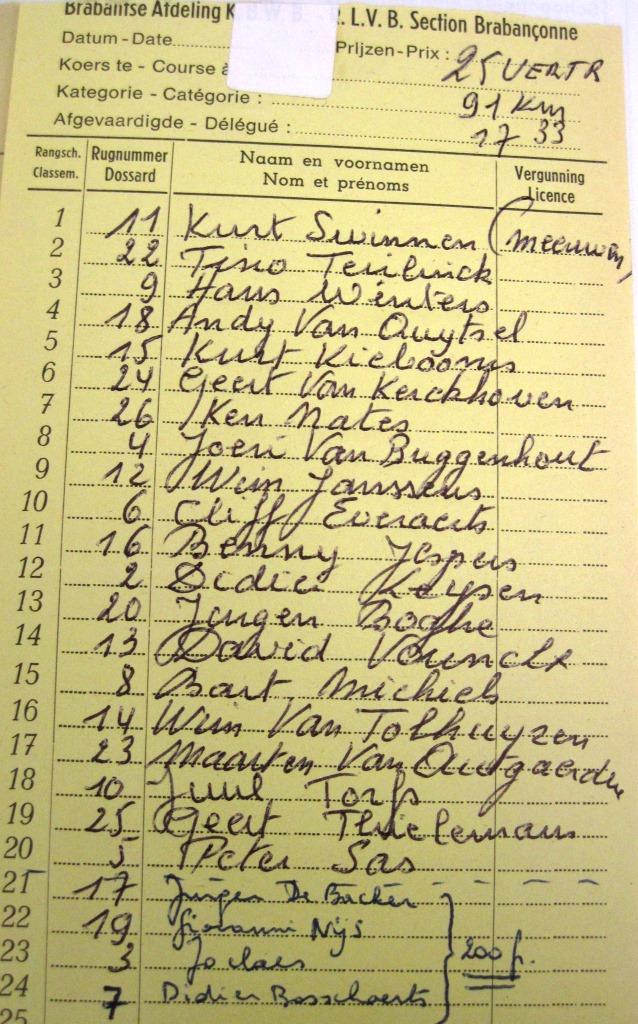 Brabantse Afdeling K . L. V. B. Section Brabançonne
Datum - Date Prijzen - Prix : 25 VERTR
Koers te - Course à
Kategorie - Catégorie : 91 Km
Afgevaardigde - Délégué : 17 33
Rangsch. Classem. Rugnummer Dossard Naam en voornamen Nom et prénoms Vergunning Licence
1 11 Kurt Swinnen (Meeuwen)
2 22 Tino Terlinck
3 9 Hans Winters
4 18 Andy Van Ouytsel
5 15 Kurt Kiebooms
6 24 Geert Van Kerckhoven
7 26 Ken Mates
8 4 Joeri Van Buggenhout
9 12 Wim Janssens
10 6 Cliff Everaerts
11 16 Benny Jespers
12 2 Didier Keysen
13 20 Jurgen Boghe
14 13 David Vounckx
15 8 Bart Michiels
16 14 Wim Van Tolhuyzen
17 23 Maarten Van Outgaerden
18 10 Juul Torfs
19 25 Geert Thielemans
20 5 Peter Sas
21 17 Jurgen De Backer
22 19 Giovanni Nijs
23 3 Jo Claes 200 f.
24 7 Didier Bosschaerts
25